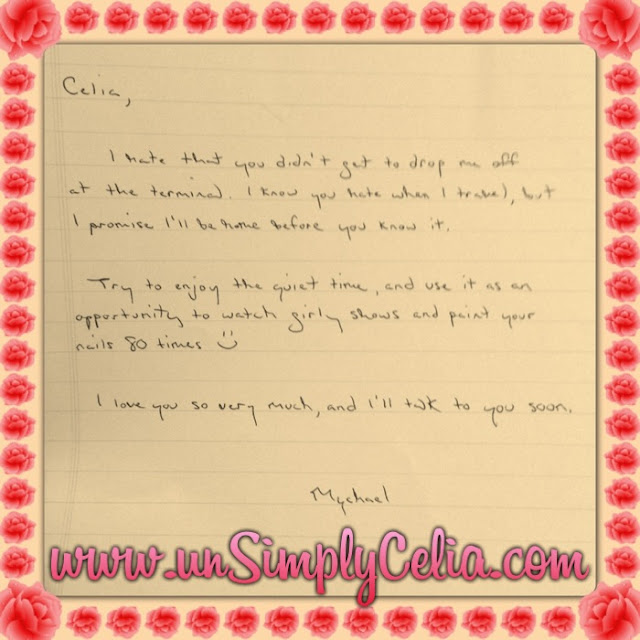 Celia,
I hate that you didn't get to drop me off
at the terminal. I know you hate when I travel, but
I promise I'll be home before you know it.
Try to enjoy the quiet time, and use it as an
opportunity to watch girly shows and paint your
nails 80 times
I love you so very much, and I'll talk to you soon.
Mychael
www.unSimplyCelia.com